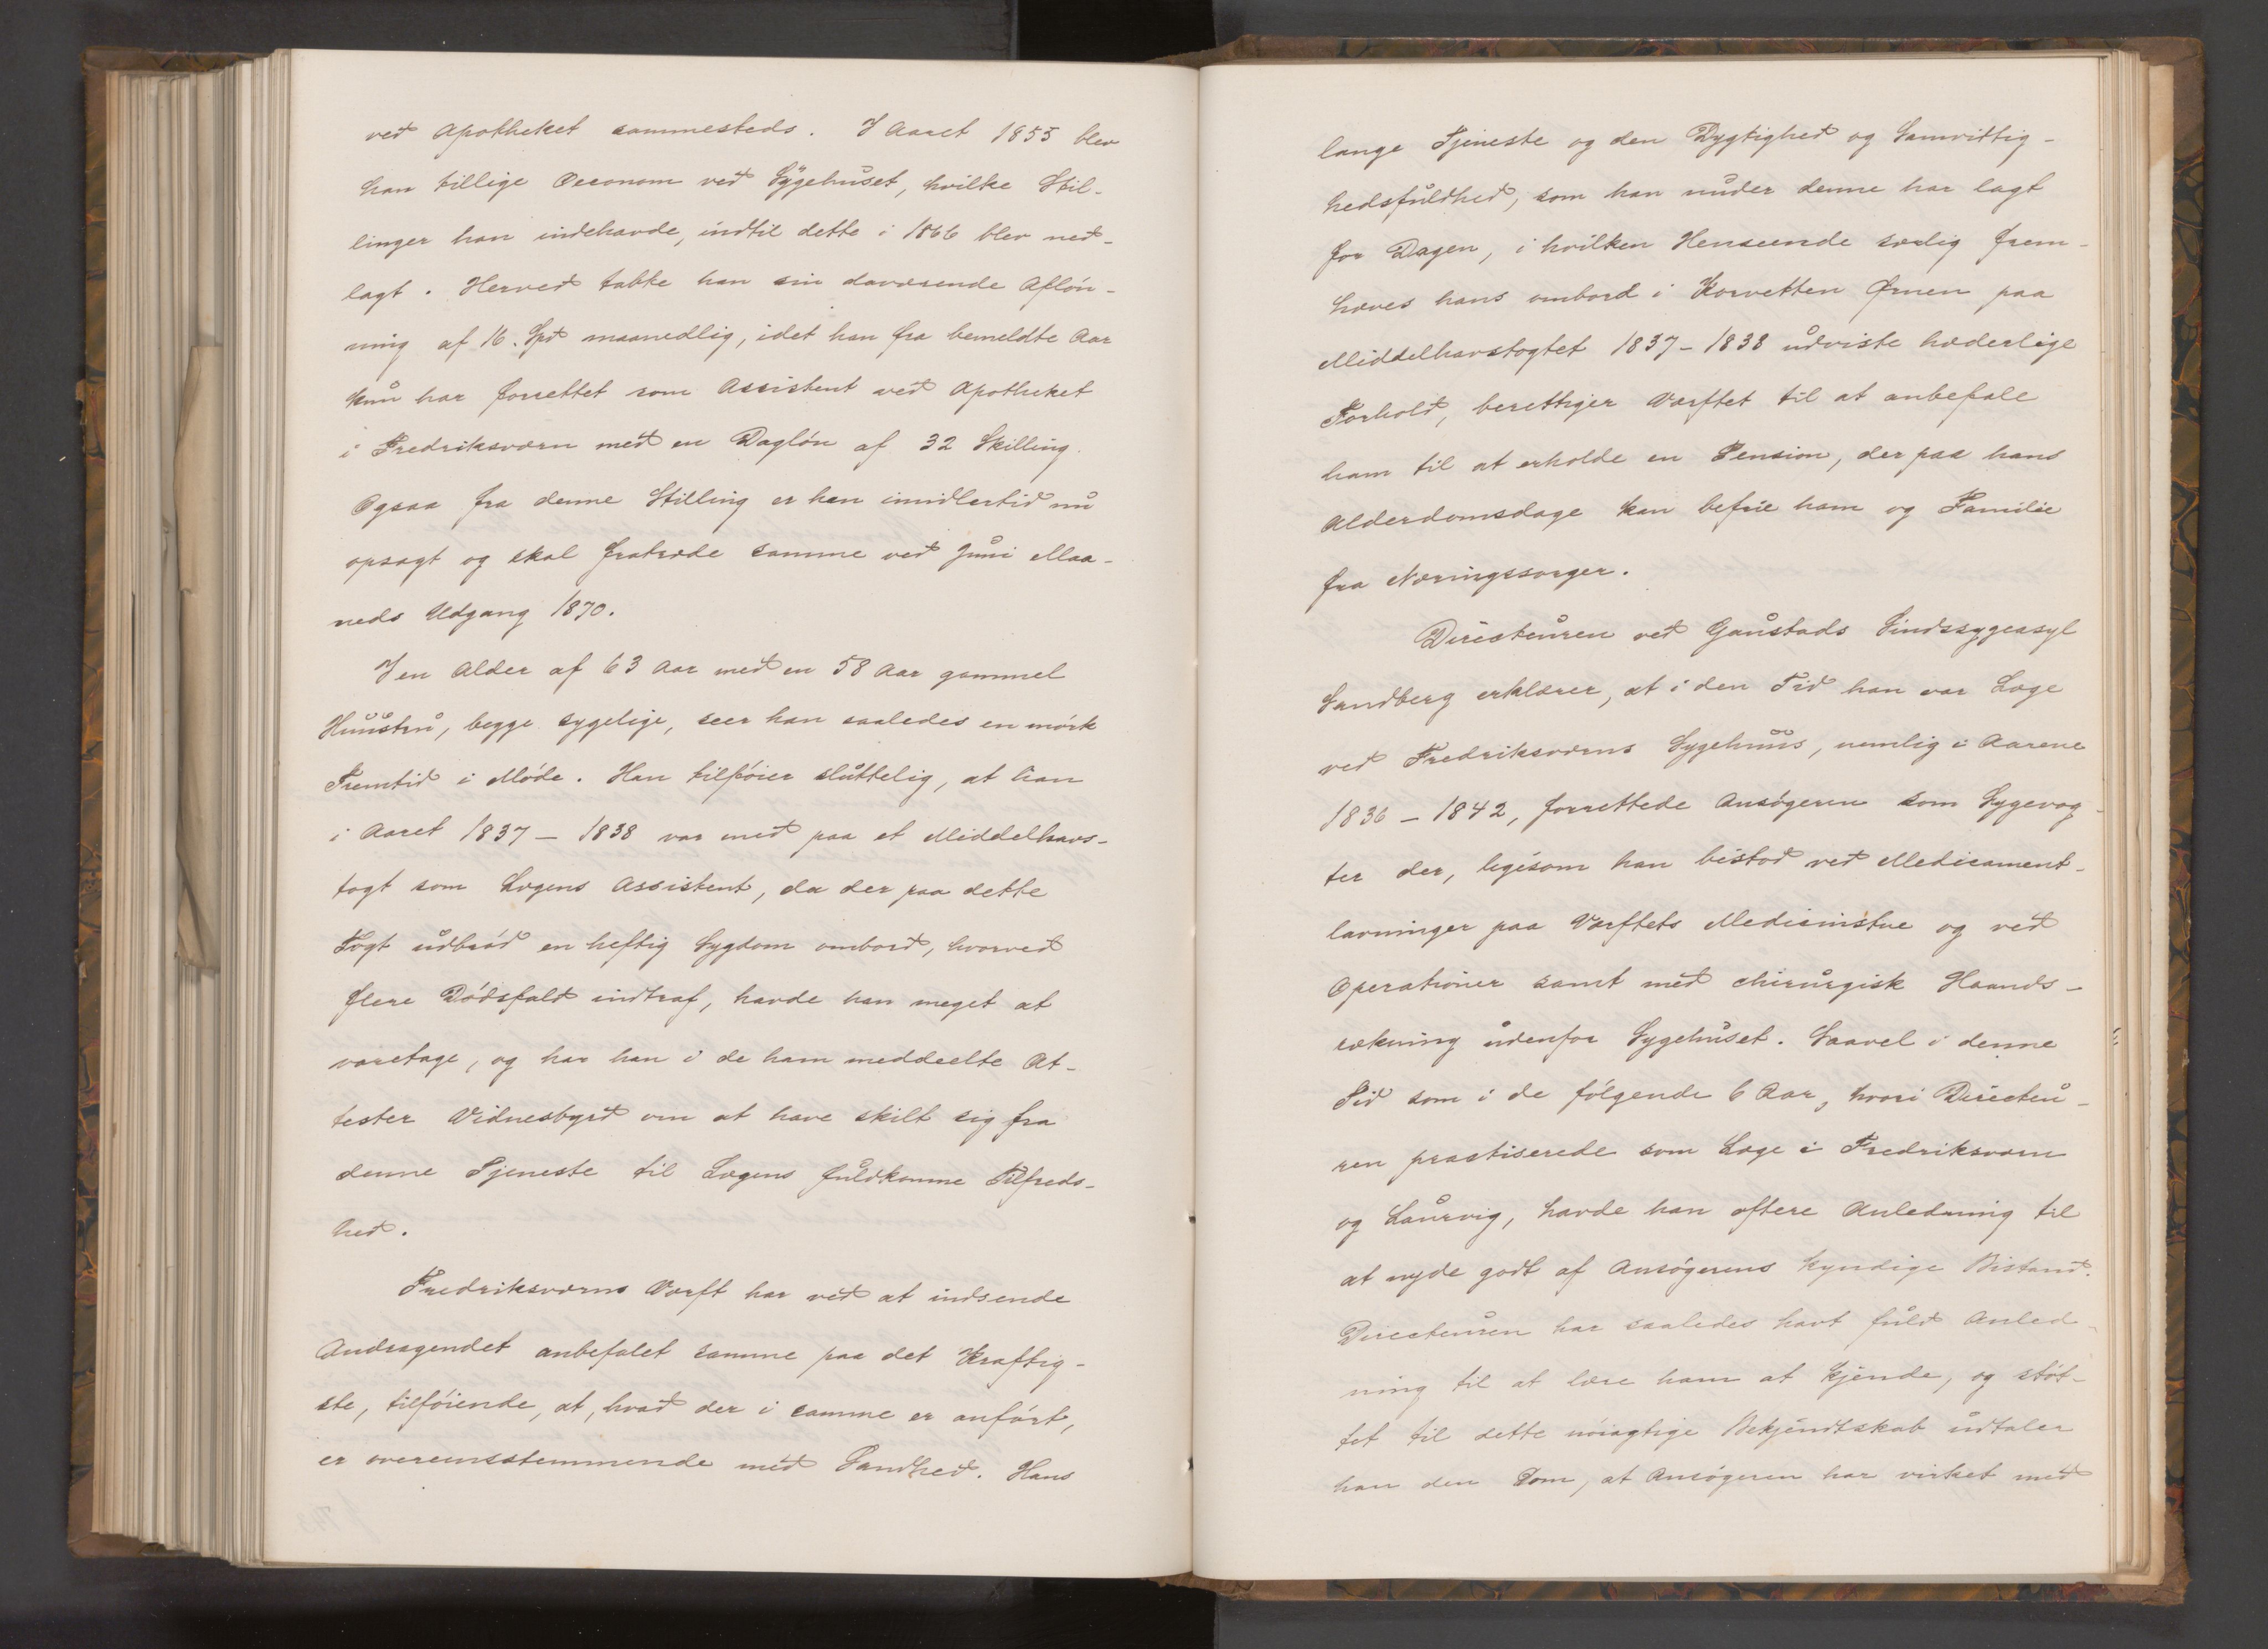 ved Apotheket sammesteds. I Aaret 1855 blev
han tillige Oeconom ved Sygehuset, hvilke Stil-
linger han indehavde, indtil dette i 1866 blev ned-
lagt. Herved tabte han sin daværende Afløn-
ning af 16. Spd maanedlig, idet han fra bemeldte Aar
kun har forrettet som Assistent ved Apotheket
i Fredriksværn med en Dagløn af 32 Skilling.
Ogsaa fra denne Stilling er han imidlertid nu
opsagt og skal fratræde samme ved Juni Maa-
neds Udgang 1870.
I en Alder af 63 Aar med en 58 Aar gammel
Huustru, begge sygelige, seer han saaledes en mørk
Fremtid i Møde. Han tilføier sluttelig, at han
i Aaret 1837 – 1838 var med paa et Middelhavs-
togt som Lægens Assistent, da der paa dette
Togt udbrød en heftig Sygdom ombord, hvorved
flere Dødsfald indtraf, havde han meget at
varetage, og har han i de ham meddeelte At-
tester Vidnesbyrd om at have skilt sig fra
denne Tjeneste til Lægens fuldkomne Tilfreds-
hed.
Fredriksværns Værft har ved at indsende
Andragendet anbefalet samme paa det Kraftig-
ste, tilføiende, at, hvad der i samme er anført,
er overeensstemmende med Sandhed. Hans
lange Tjeneste og den Dygtighed og Samvittig-
hedsfuldhed, som han under denne har lagt
for Dagen, i hvilken Henseende særlig frem-
hæves hans ombord i Korvetten Ørnen paa
Middelhavstogtet 1837 – 1838 udviste hæderlige
Forhold, berettiger Værftet til at anbefale
ham til at erholde en Pension, der paa hans
Alderdomsdage kan befrie ham og Familie
fra Næringssorger.
Directeuren ved Gaustads Sindssygeasyl
Sandberg erklærer, at i den Tid han var Læge
ved Fredriksværns Sygehuus, nemlig i Aarene
1836 – 1842, forrettede Ansøgeren som Sygevog-
ter der, ligesom han bistod ved Medicament-
lavninger paa Værftets Medicinstue og ved
Operationer samt med chirurgisk Haands-
rækning udenfor Sygehuset. Saavel i denne
Tid som i de følgende 6 Aar, hvori Directeu-
ren practiserede som Læge i Fredriksværn
og Laurvig, havde han oftere Anledning til
at nyde godt af Ansøgerens kyndige Bistand.
Directeuren har saaledes havt fuld Anled-
ning til at lære ham at kjende, og støt-
tet til dette nøiagtige Bekjendtskab udtaler
han den Dom, at Ansøgeren har virket med